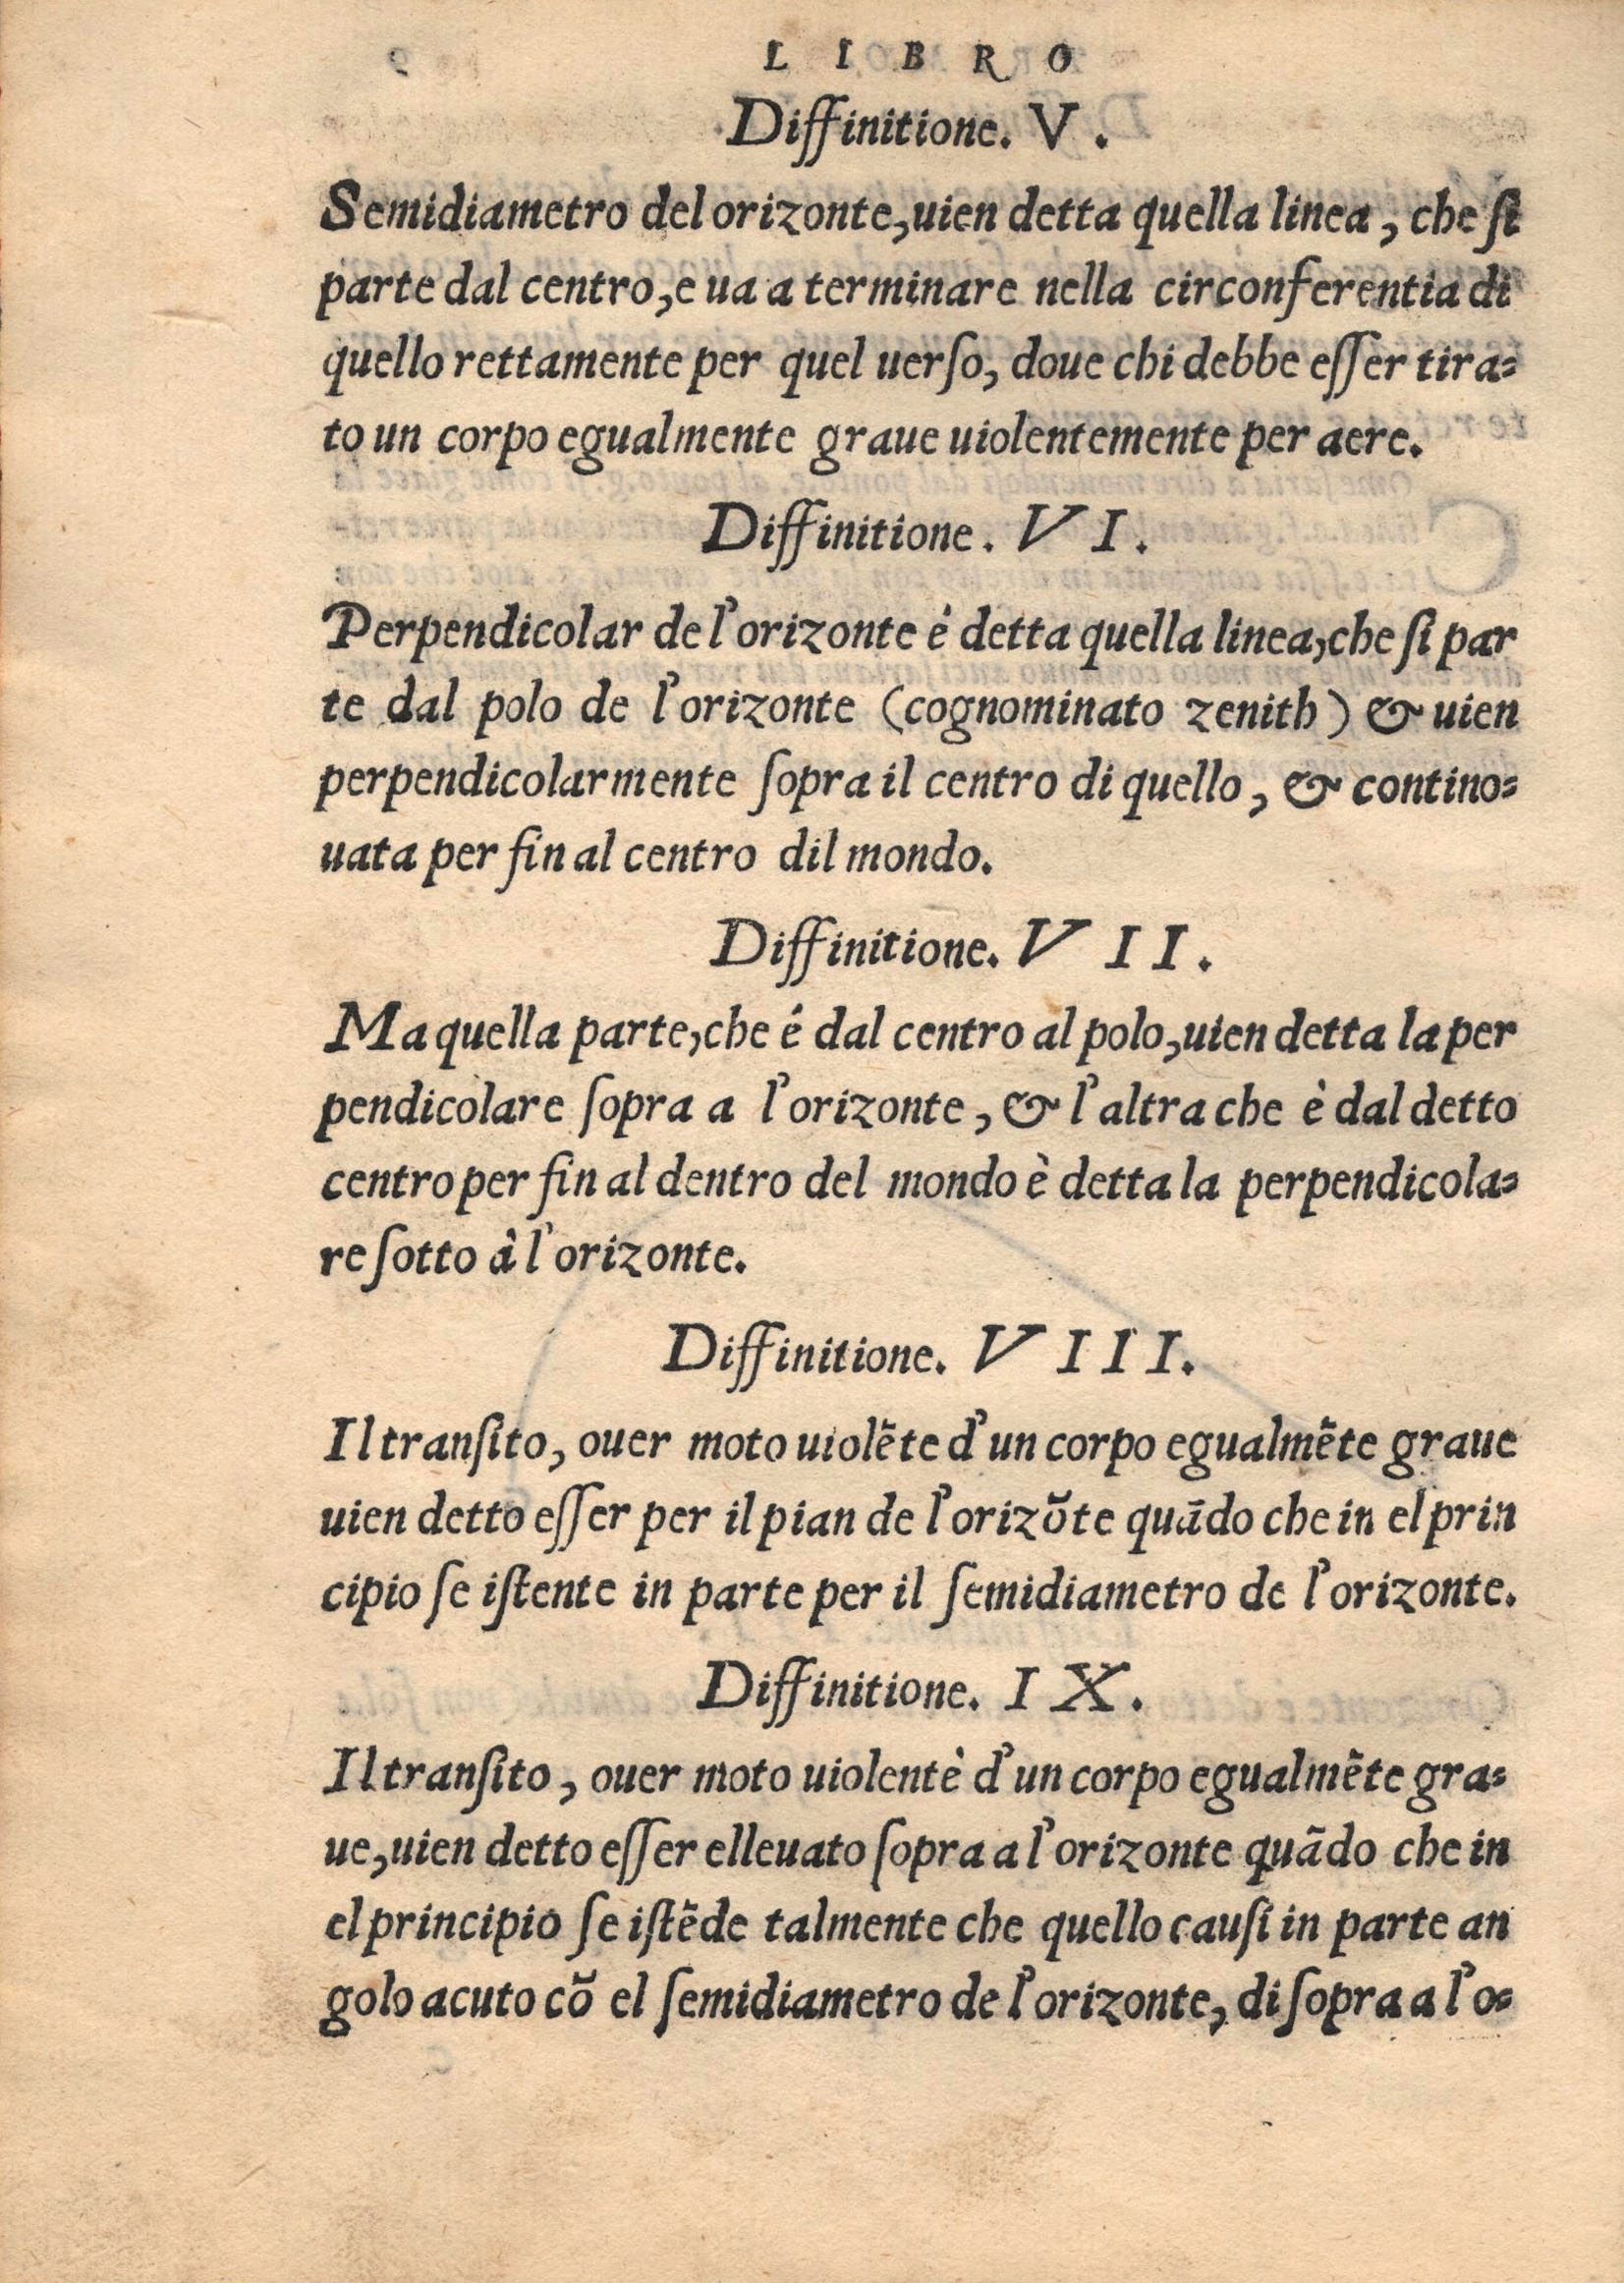 LIBRO
Diffinitione. V.
Semidiametro del orizonte, uien detta quella linea, che ſi
parte dal centro, e ua a terminare nella circonferentia di
quello rettamente per quel uerſo, doue chi debbe eſſer tira=
to un corpo egualmente graue uiolentemente per aere.
Diffinitione. VI.
Perpendicolar de l'orizonte è detta quella linea, che ſi par
te dal polo de l'orizonte (cognominato zenith) & uien
perpendicolarmente ſopra il centro di quello, & contino=
uata per fin al centro dil mondo.
Diffinitione. VII.
Ma quella parte, che é dal centro al polo, uien detta la per
pendicolare ſopra a l'orizonte, & l'altra che è dal detto
centro per fin al dentro del mondo è detta la perpendicola=
re ſotto à l'orizonte.
Diffinitione. VIII.
Il tranſito, ouer moto uiolẽte d'un corpo egualmẽte graue
uien detto eſſer per il pian de l'orizõte quãdo che in el prin
cipio ſe iſtente in parte per il ſemidiametro de l'orizonte.
Diffinitione. IX.
Il tranſito, ouer moto uiolentè d'un corpo egualmẽte gra=
ue, uien detto eſſer elleuato ſopra a l'orizonte quãdo che in
el principio ſe iſtẽde talmente che quello cauſi in parte an
golo acuto cõ el ſemidiametro de l'orizonte, di ſopra a l'o=